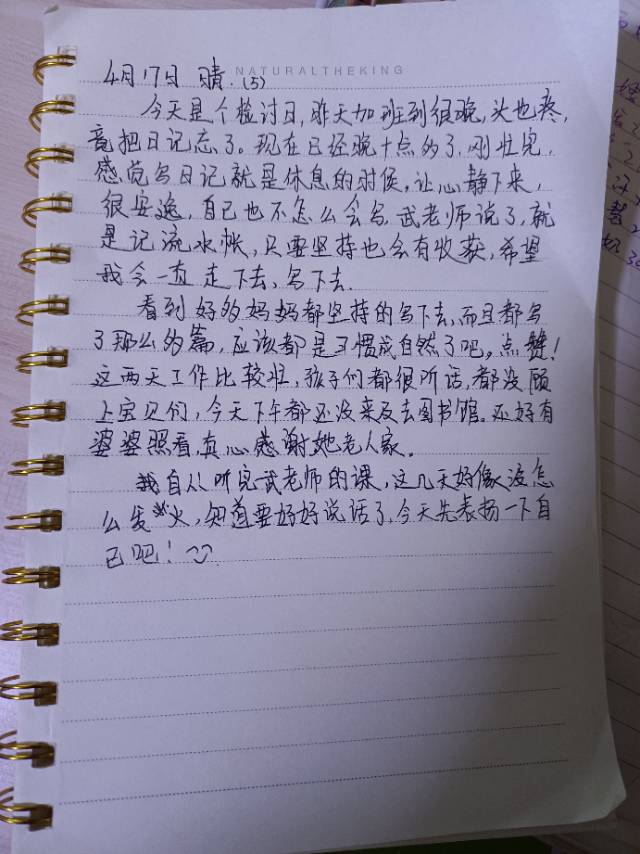 NATURALTHEKING
4月17日 晴 (5)
今天是个检讨日,昨天加班到很晚,头也疼,
竟把日记忘了。现在已经晚十点多了,刚忙完,
感觉写日记就是休息的时候,让心静下来,
很安逸,自己也不怎么会写,武老师说了,就
是记流水帐,只要坚持也会有收获,希望
我会一直走下去,写下去.
看到好多妈妈都坚持的写下去,而且都写
了那么多篇,应该都是习惯成自然了吧,点赞!
这两天工作比较忙,孩子们都很听话,都没顾
上宝贝们,今天下午都还没来及去图书馆。还好有
婆婆照看,真心感谢她老人家。
我自从听完武老师的课,这几天好像没怎
么发火,知道要好好说话了,今天先表扬一下自
己吧!